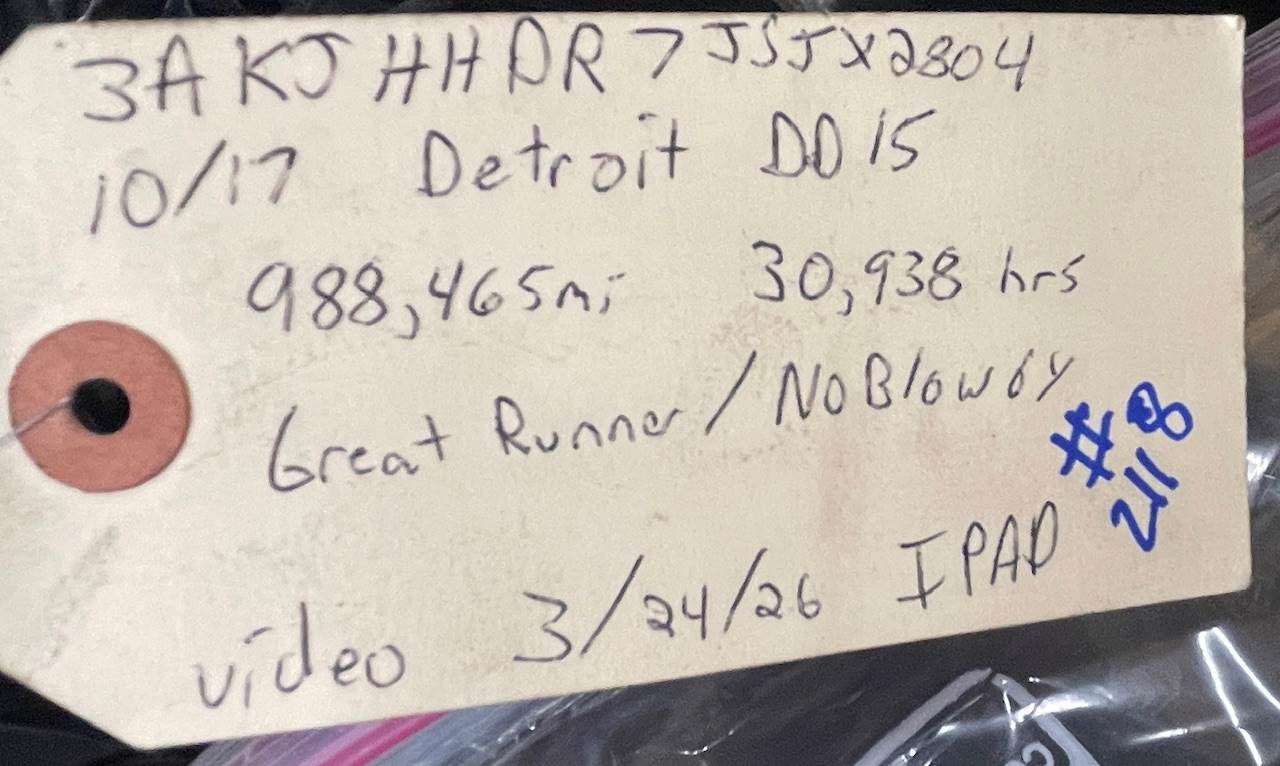 3AKJHHDR7JSJX2804
10/17 Detroit DD15
988,465mi 30,938 hrs
Great Runner/NoBlowby
#2118
video 3/24/26 IPAD